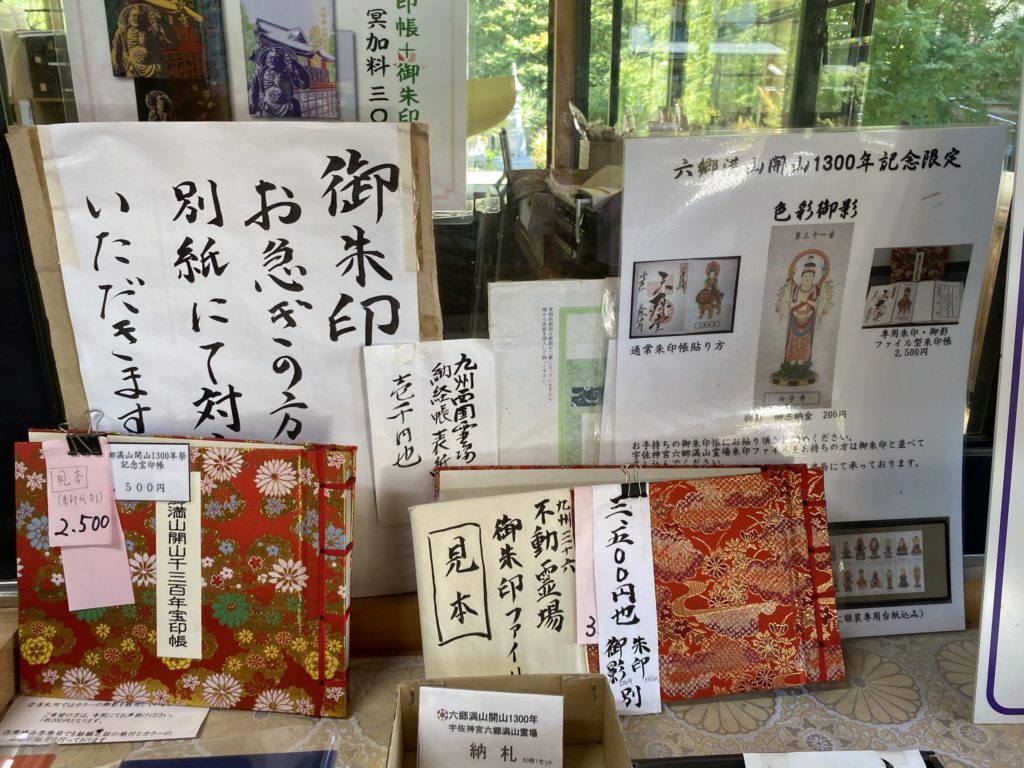 印帳+御朱印
冥加料三〇
御朱印
お急ぎの方
別紙にて対
いただきます
九州四国霊場
納経帳表紙
壱千円也
六郷満山開山1300年記念限定
色彩御影
第三十一番
両子寺
通常朱印帳貼り方
専用朱印・御影
ファイル型朱印帳
2,500円
200円
お手持ちの御朱印帳にお貼り頂き
宇佐神宮六郷満山霊場朱印ファイルをお持ちの方は御朱印と並べて
局にて承っております。
額装専用台紙込み)
見本
(朱印代別)
2.500
郷満山開山1300年祭
記念宝印帳
500円
郷満山開山千三百年宝印帳
九州三十六
不動霊場
御朱印ファイル
見本
3.500円也
朱印
御影
別
六郷満山開山1300年
宇佐神宮六郷満山霊場
納札
50枚1セット